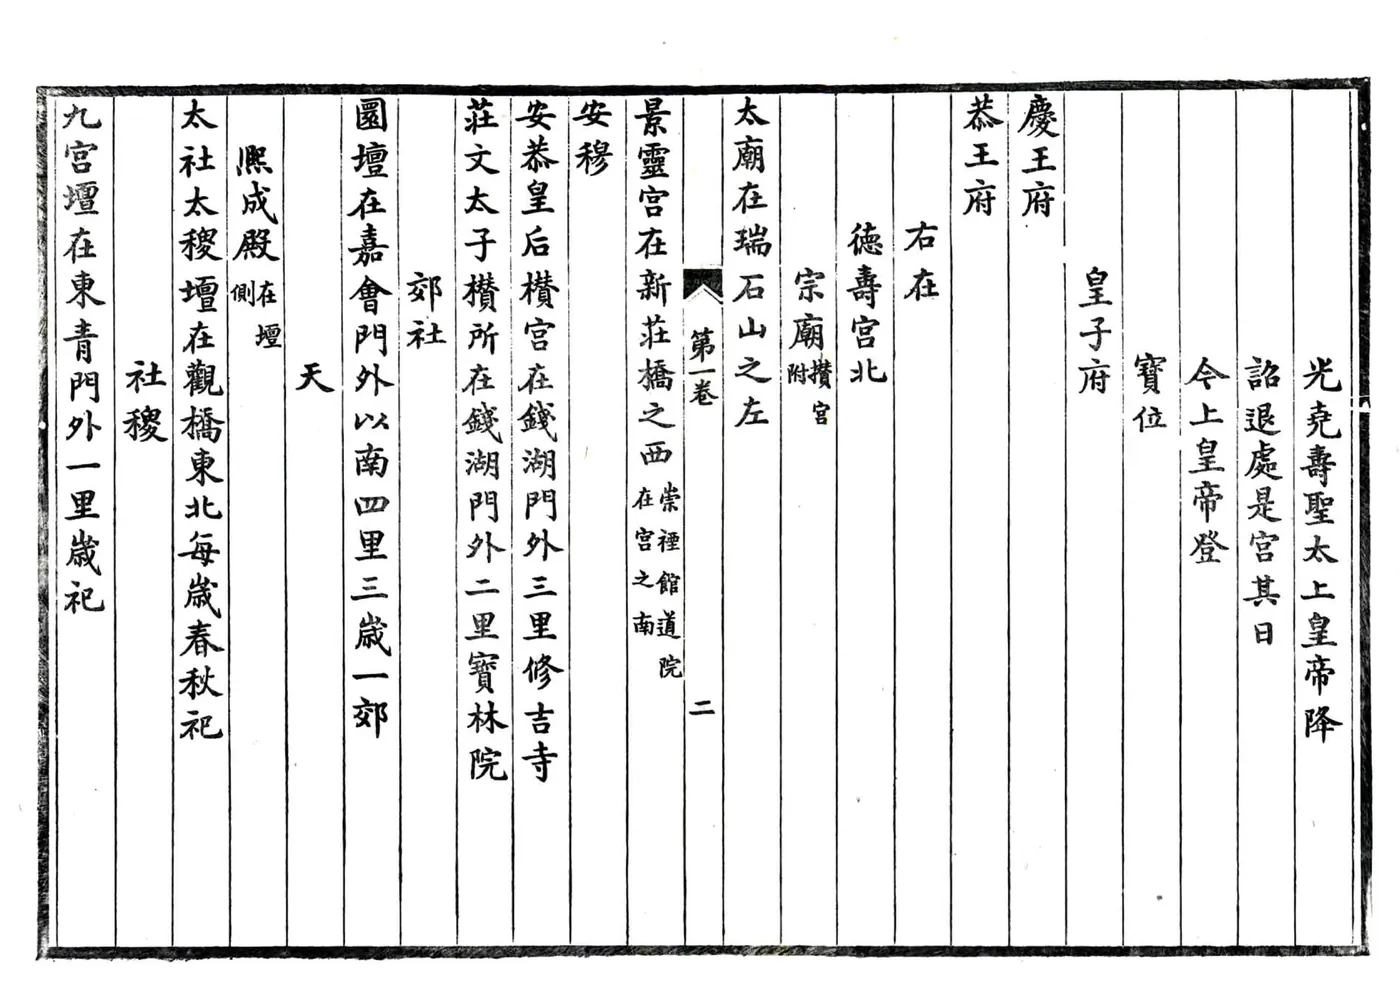 光堯壽聖太上皇帝降
詔退處是宮其日
今上皇帝登
寶位
皇子府
慶王府
恭王府
右在
德壽宮北
宗廟攢宮附
太廟在瑞石山之左
第一卷 二
景靈宮在新莊橋之西崇禋館道院在宮之南
安穆
安恭皇后欑宮在錢湖門外三里修吉寺
莊文太子欑所在錢湖門外二里寶林院
郊社
圜壇在嘉會門外以南四里三歲一郊
天
熈成殿在壇側
太社太稷壇在觀橋東北每歲春秋祀
社稷
九宮壇在東青門外一里歲祀